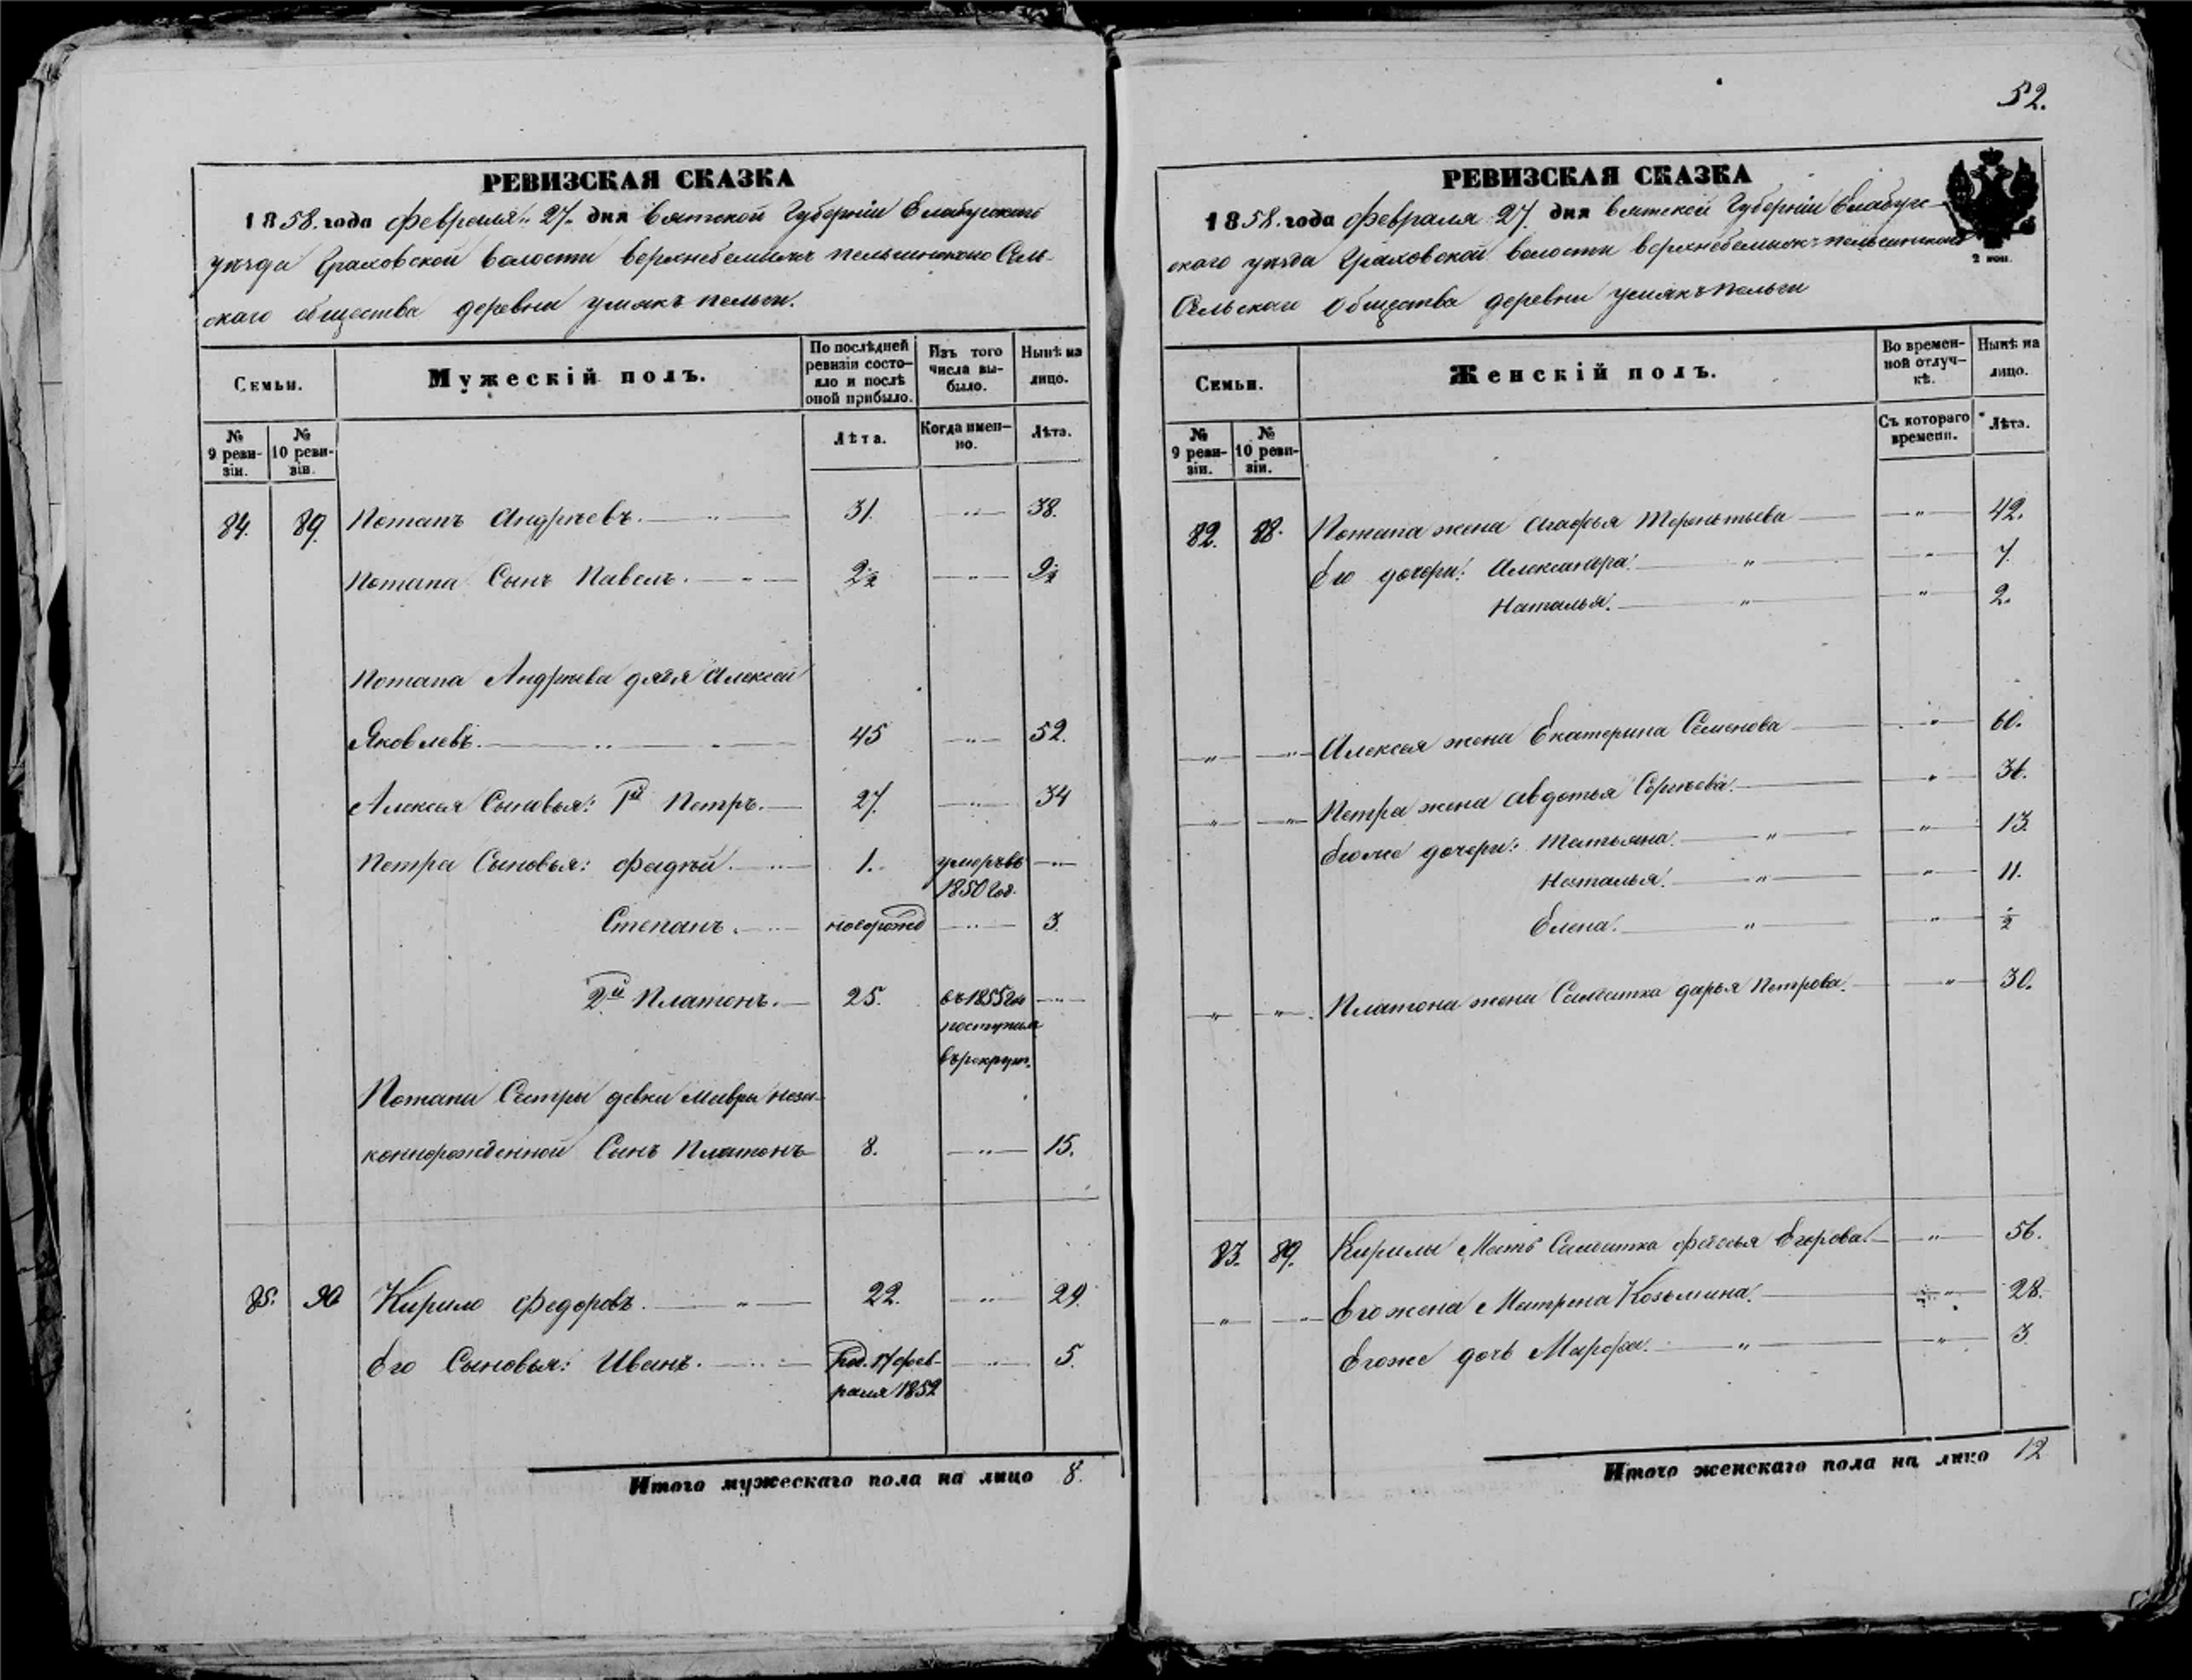 РЕВИЗСКАЯ СКАЗКА
1858. года Февраля „27„ дня Вятской Губернiи Елабужскаго
уѣзда Граховской волости Верхне пельгинскаго Сель-
скаго общества деревни умякъ пельги.
Семьи.
Мужескiй полъ.
По послѣдней ревизiи состо-
яло и послѣ
оной прибыло.
Изъ того
числа вы-
было.
Нынѣ на
лицо.
№
9 реви-
зiи.
№
10 реви-
зiи.
Лѣта.
Когда имен-
но.
Лѣта.
84. 89. Потапъ Андреевъ. 31. 38.
Потапа Сынъ Павелъ.
Потапа Андреева дядя Алексей
Яковлевъ. 45 52.
Алексея Сыновья: 1й Петръ. 27. 34
Петра Сыновья: Фадѣй. 1. умеръ въ
1850 год.
Степанъ. новорожд 3.
2й Платонъ. 25. въ 1855 год
поступилъ
въ рекрут.
Потапа Сестры девки Мавры неза-
коннорожденной Сынъ Платонъ 8. 15.
85. 90 Кирило Федоровъ. 22. 29.
Его Сыновья: Иванъ. Род. 17 фев- 5.
раля 1852
Итого мужескаго пола на лицо 8.
52.
РЕВИЗСКАЯ СКАЗКА
1858. года Февраля 27. дня Вятской Губернiи Елабуж-
скаго уѣзда Граховской волости пельгинскаго
2 коп.
Сельскаго Общества деревни умякъ пельги
Семьи.
Женскiй полъ.
Во времен-
ной отлуч-
кѣ.
Нынѣ на
лицо.
№
9 реви-
зiи.
№
10 реви-
зiи.
Съ котораго
времени.
Лѣта.
82. 88. Потапа жена Агафья Терентьева 42.
Его дочери: Александра. 7.
Наталья. 2.
Алексея жена Екатерина Семенова 60.
Петра жена Авдотья Сергѣева.
Егоже дочери: Татьяна. 13.
Наталья. 11.
Елена. ½
Платона жена Салдатка дарья Петрова. 30.
83. 89. Кирилы Мать Салдатка Егорова. 56.
Его жена Матрена Козьмина. 28.
Егоже дочь Марфа. 3
Итого женскаго пола на лицо 12